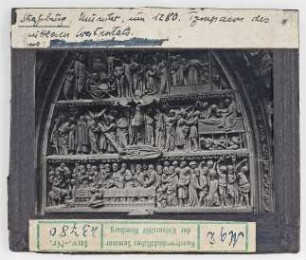 Straßburg, Münster, um 1280. Tympanon des
mittleren Westportals.
Kunsthistorisches Seminar
der Universität Hamburg
Inv.-Nr.
23780